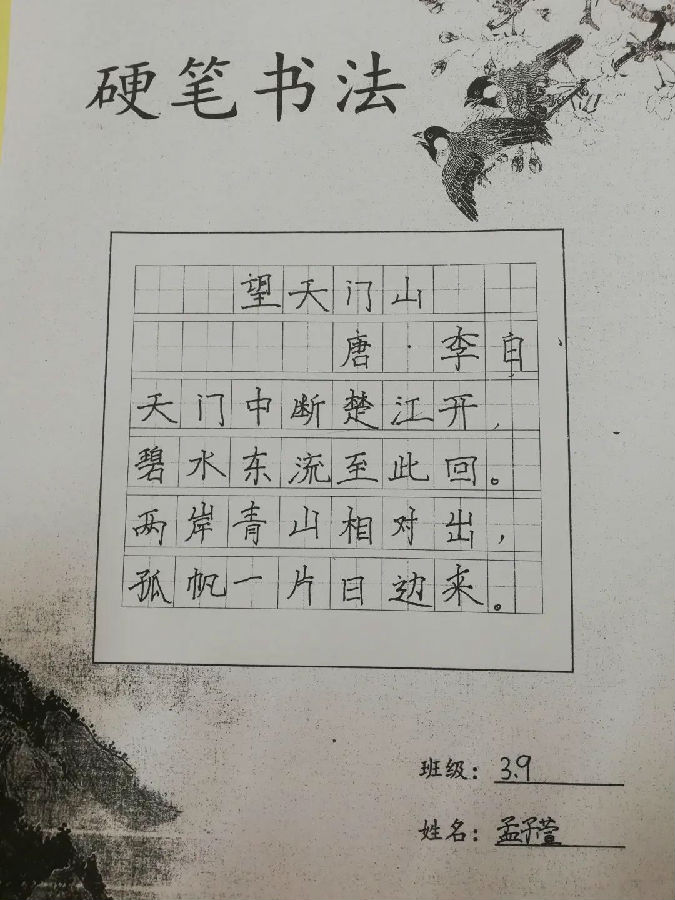 硬笔书法
望天门山
唐·李白
天门中断楚江开，
碧水东流至此回。
两岸青山相对出，
孤帆一片日边来。
班级：3.9
姓名：孟子萱